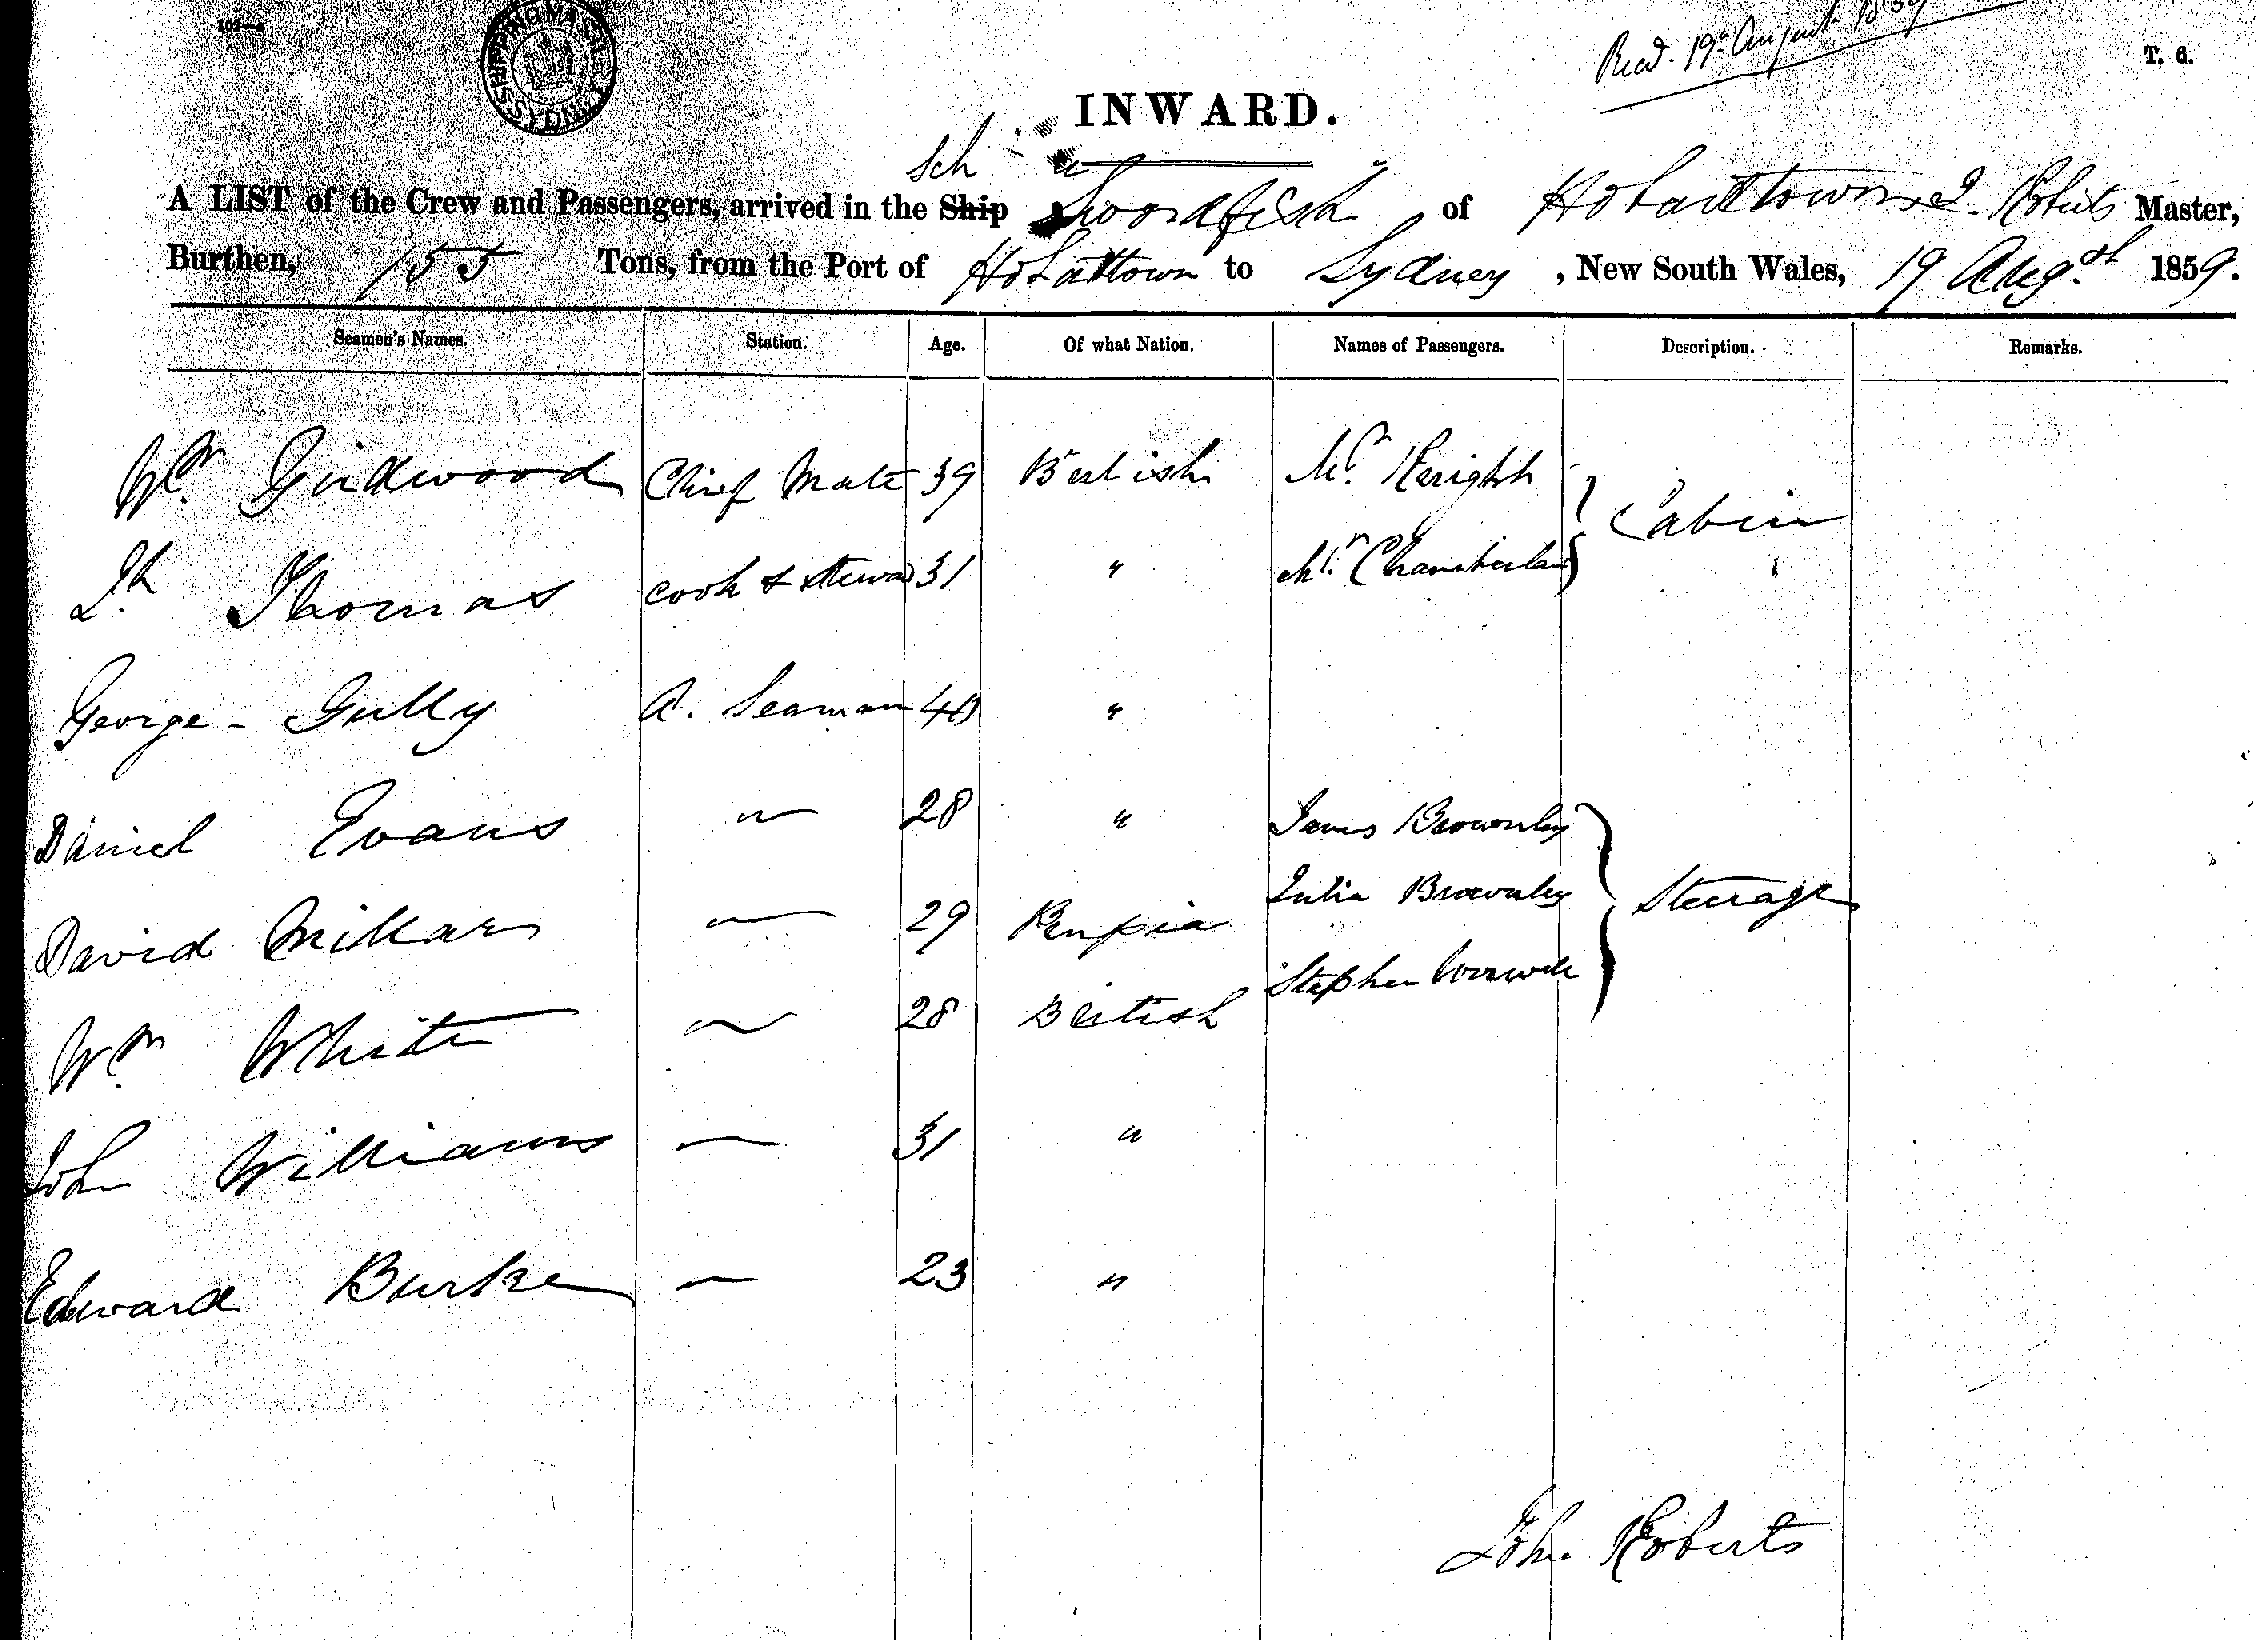 SHIPPING MASTER'S SYDNEY
Recd. 19th August 1859
T. 6.
INWARD.
Sch
A LIST of the Crew and Passengers, arrived in the Ship "Swordfish" of Hobarttown J. Roberts Master,
Burthen, 155 Tons, from the Port of Hobarttown to Sydney, New South Wales, 19 Augst 1859.
Seamen's Names. Station. Age. Of what Nation. Names of Passengers. Description. Remarks.
Wm Girdwood Chief Mate 39 British Mr.
Cabin
Thomas Cook & Steward 31 " Mr. Chamberlain
George Gully A. Seaman 40 "
Daniel Evans " 28 " James Brownley
Julia Brownley Steerage
David Millar — 29 Russia
Stephen
Wm White — 28 British
John Williams — 31 "
Edward Burke — 23 "
John Roberts